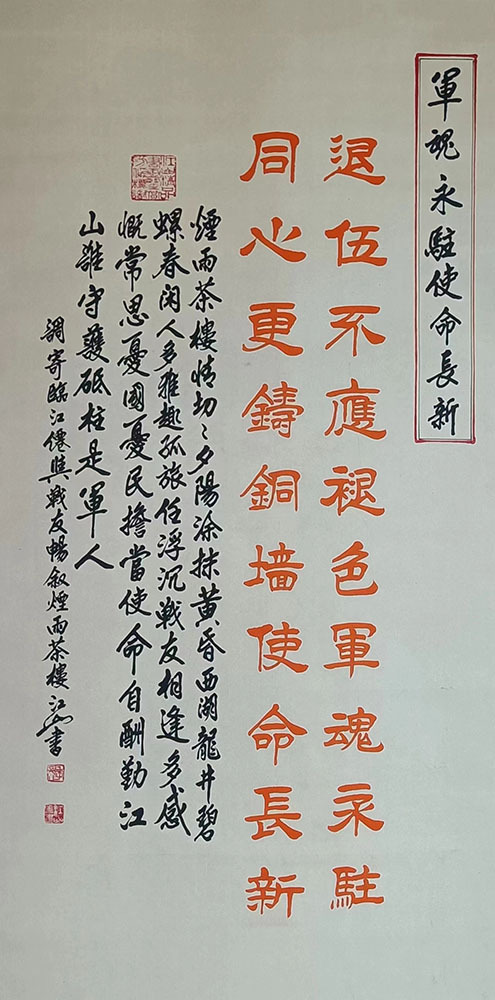 軍魂永駐使命長新
退伍不應褪色軍魂永駐
同心更鑄銅墙使命長新
煙雨茶樓情切切夕陽涂抹黄昏西湖龍井碧
螺春闲人多雅趣孤旅任浮沉戰友相逢多感
慨常思憂國憂民擔當使命自酬勤江
山雖守護砥柱是軍人
調寄臨江僊與戰友暢叙煙雨茶樓 书